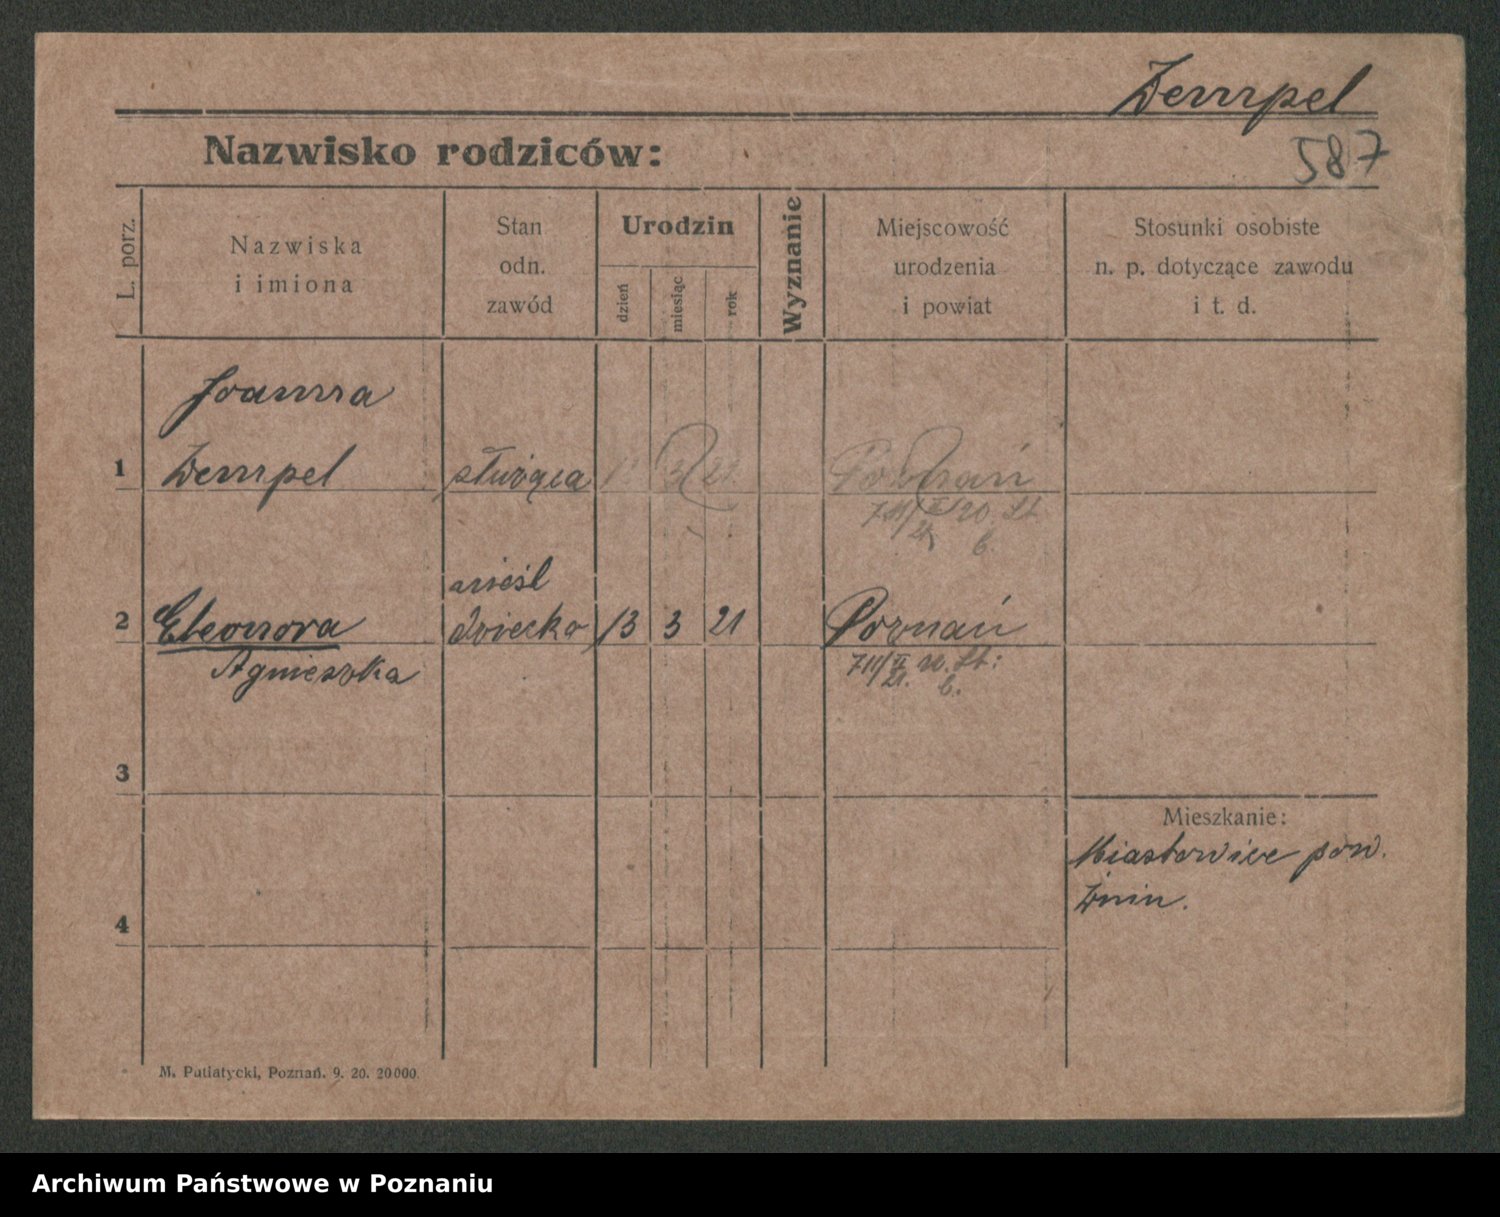 Dempel
587
Nazwisko rodziców:
L. porz.
Nazwiska
i imiona
Stan
odn.
zawód
Urodzin
dzień
miesiąc
rok
Wyznanie
Miejscowość
urodzenia
i powiat
Stosunki osobiste
n. p. dotyczące zawodu
i t. d.
Joanna
1 Dempel służąca 3 21 Poznań
nieśl
2 Eleonora dziecko 13 3 21 Poznań
Agnieszka
3
Mieszkanie:
Miastowice pow.
Żnin.
4
M. Putiatycki, Poznań. 9. 20. 20000.
Archiwum Państwowe w Poznaniu